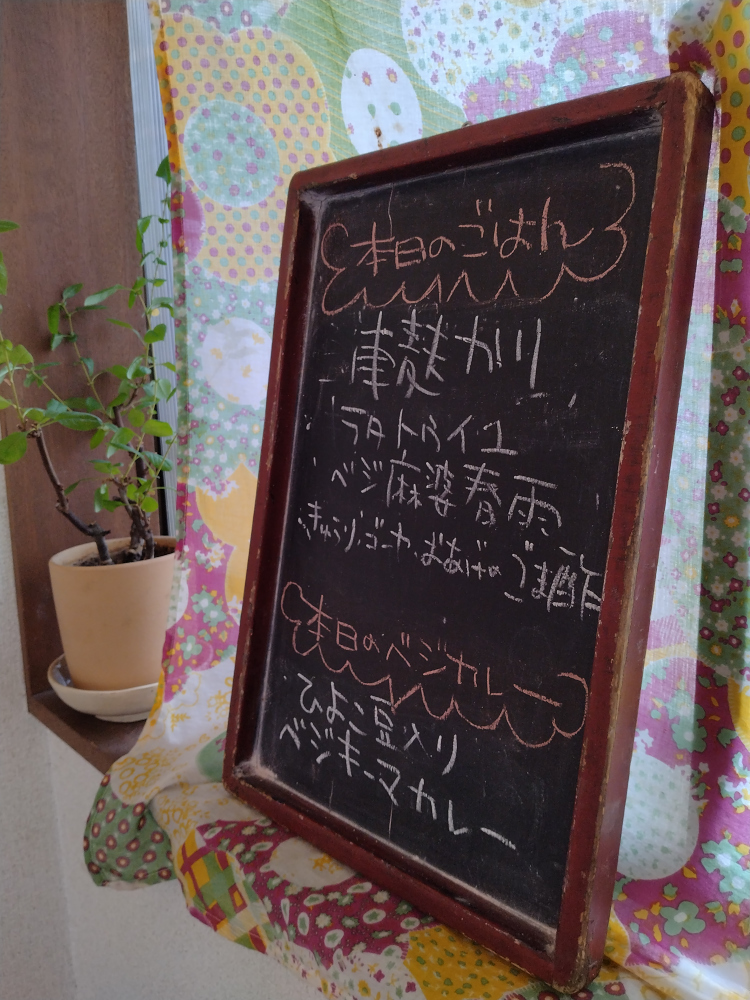 本日のごはん
車麩カツ
・ラタトゥイユ
・ベジ麻婆春雨
・きゅうり・ゴーヤ・おあげのごま酢
本日のベジカレー
・ひよこ豆入り
ベジキーマカレー